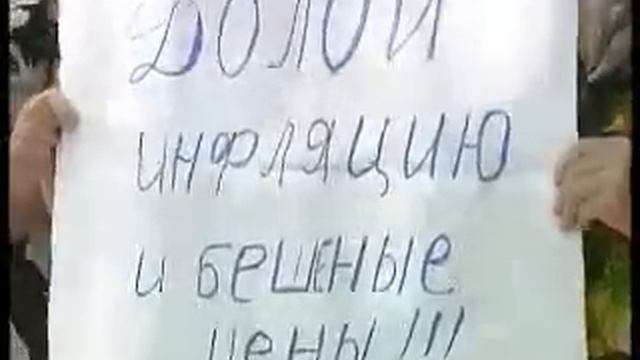 ДОЛОЙ
ИНФЛЯЦИЮ
И БЕШЕНЫЕ
ЦЕНЫ!!!